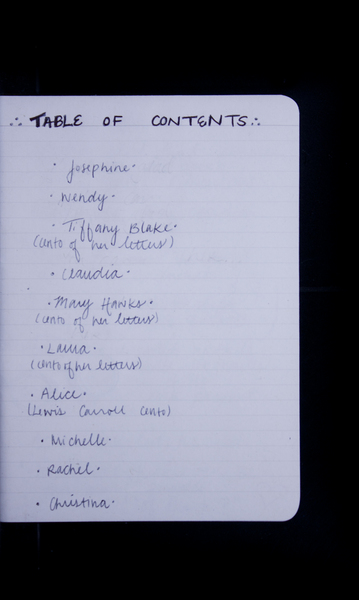 ∴ TABLE OF CONTENTS ∴
· Josephine ·
· Wendy ·
· Tiffany Blake ·
(cento of her letters)
· Claudia ·
· Mary Hawks ·
(cento of her letters)
· Laura ·
(cento of her letters)
· Alice ·
(Lewis Carroll cento)
· Michelle ·
· Rachel ·
· Christina ·